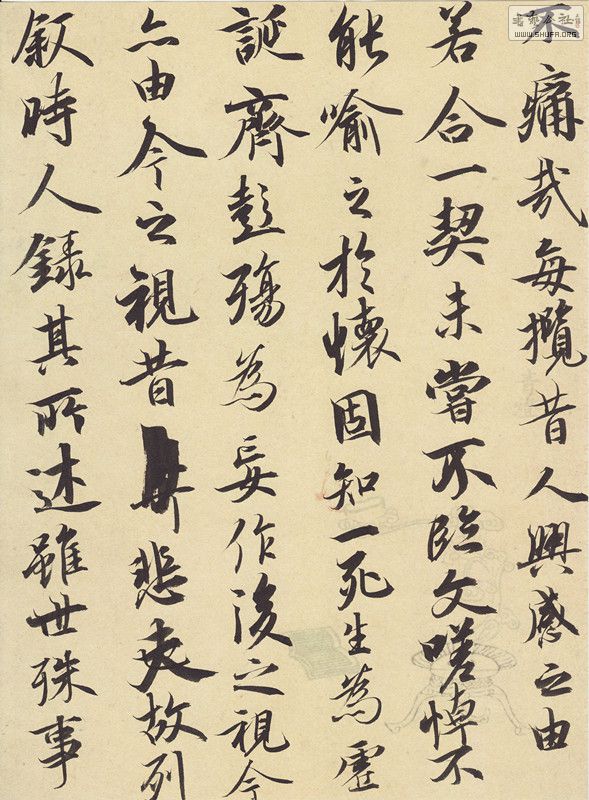 不痛哉每攬昔人興感之由
若合一契未嘗不臨文嗟悼不
能喻之於懷固知一死生為虛
誕齊彭殤為妄作後之視今
亦由今之視昔悲夫故列
叙時人錄其所述雖世殊事
WWW.SHUFA.ORG